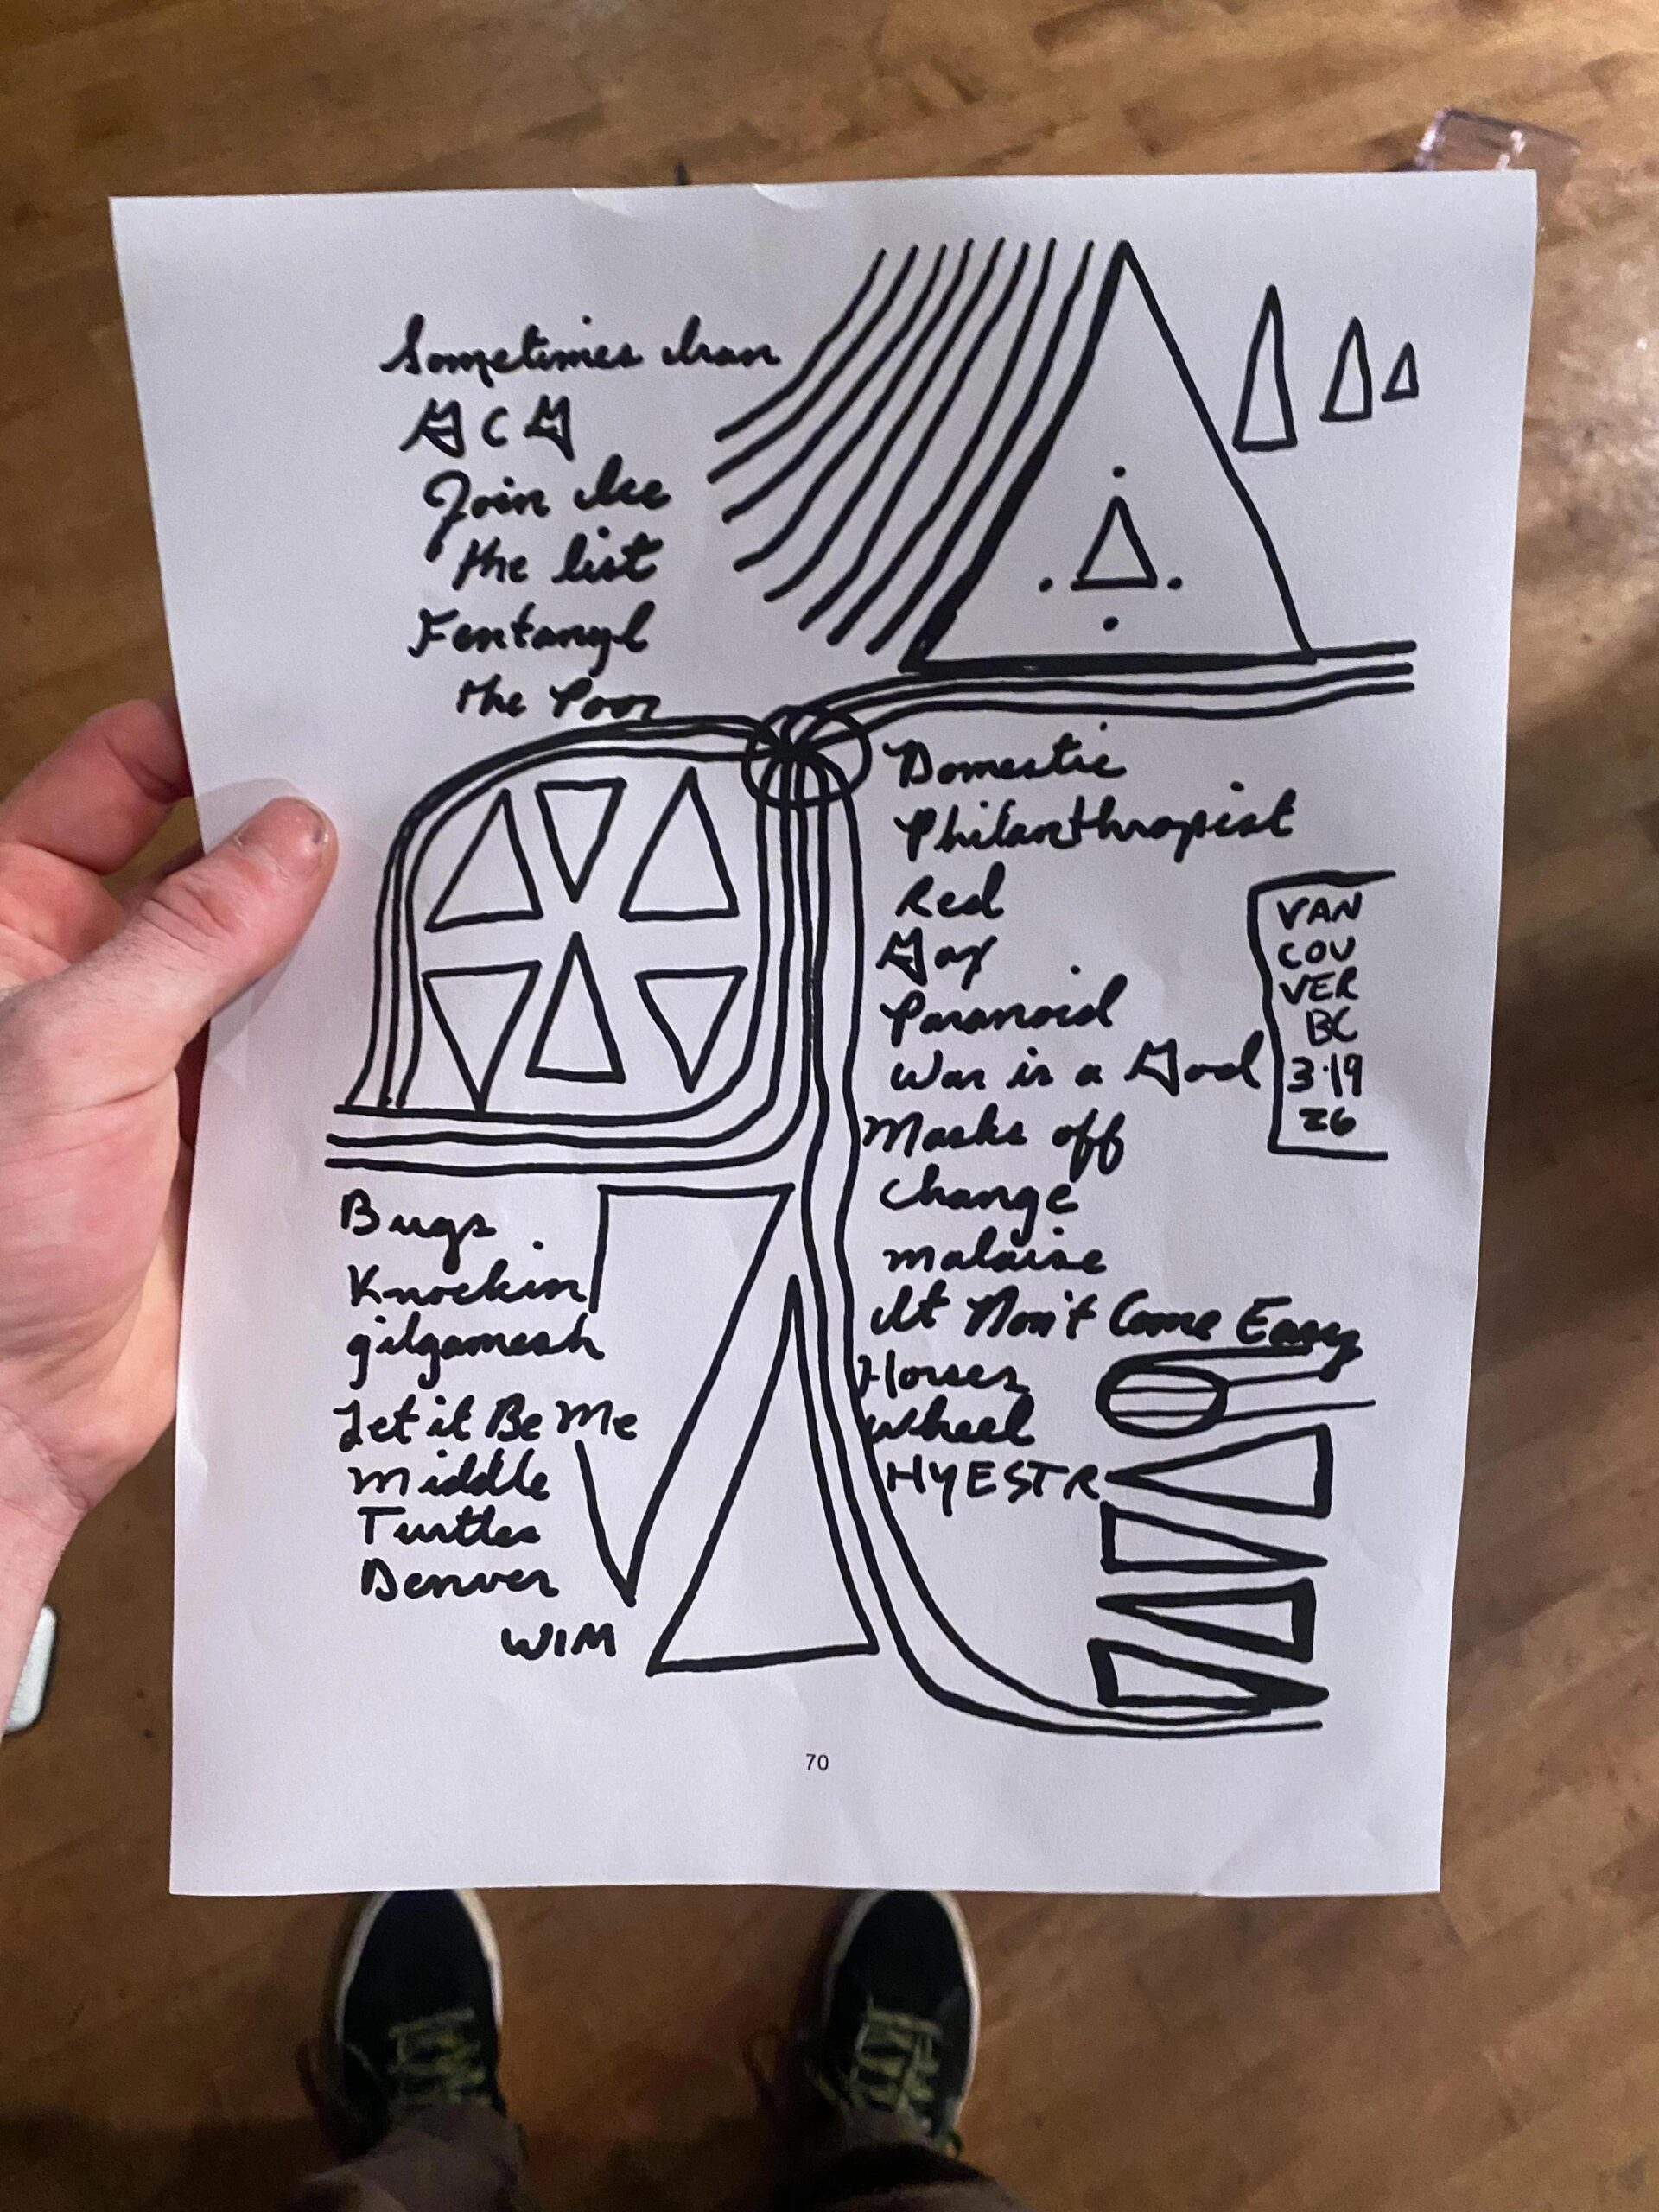 Sometimes Iran
GCG
Join Ice
the list
Fentanyl
the Poor
Domestic
Philanthropist
Red
Paranoid
War is a God
Masks off
Change
malaise
It Don't Come Easy
Horses
Wheel
HYESTR
VAN
COU
VER
BC
3·19
26
Bugs
Knockin
gilgamesh
Let it Be Me
Middle
Turtles
Denver
WIM
70